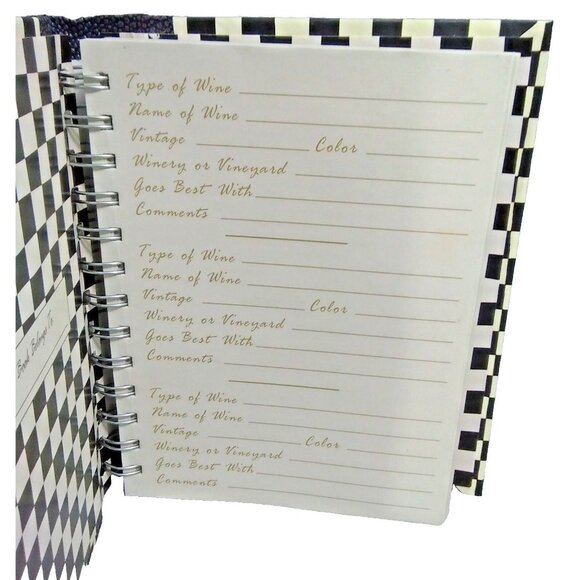 Book Belongs To:
Type of Wine
Name of Wine
Vintage Color
Winery or Vineyard
Goes Best With
Comments
Type of Wine
Name of Wine
Vintage Color
Winery or Vineyard
Goes Best With
Comments
Type of Wine
Name of Wine
Vintage Color
Winery or Vineyard
Goes Best With
Comments